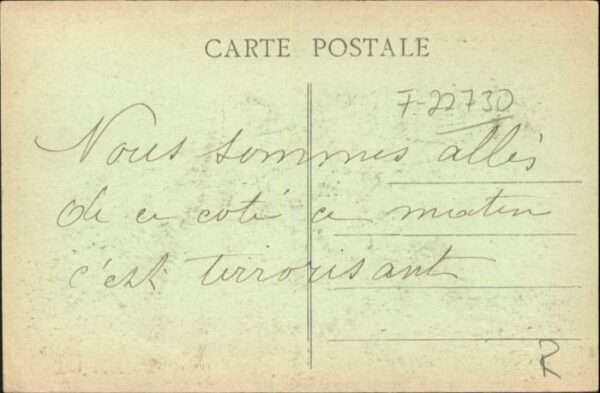 CARTE POSTALE
F-22730
Nous sommes allés
de ce coté ce matin
c'est terrorisant
R